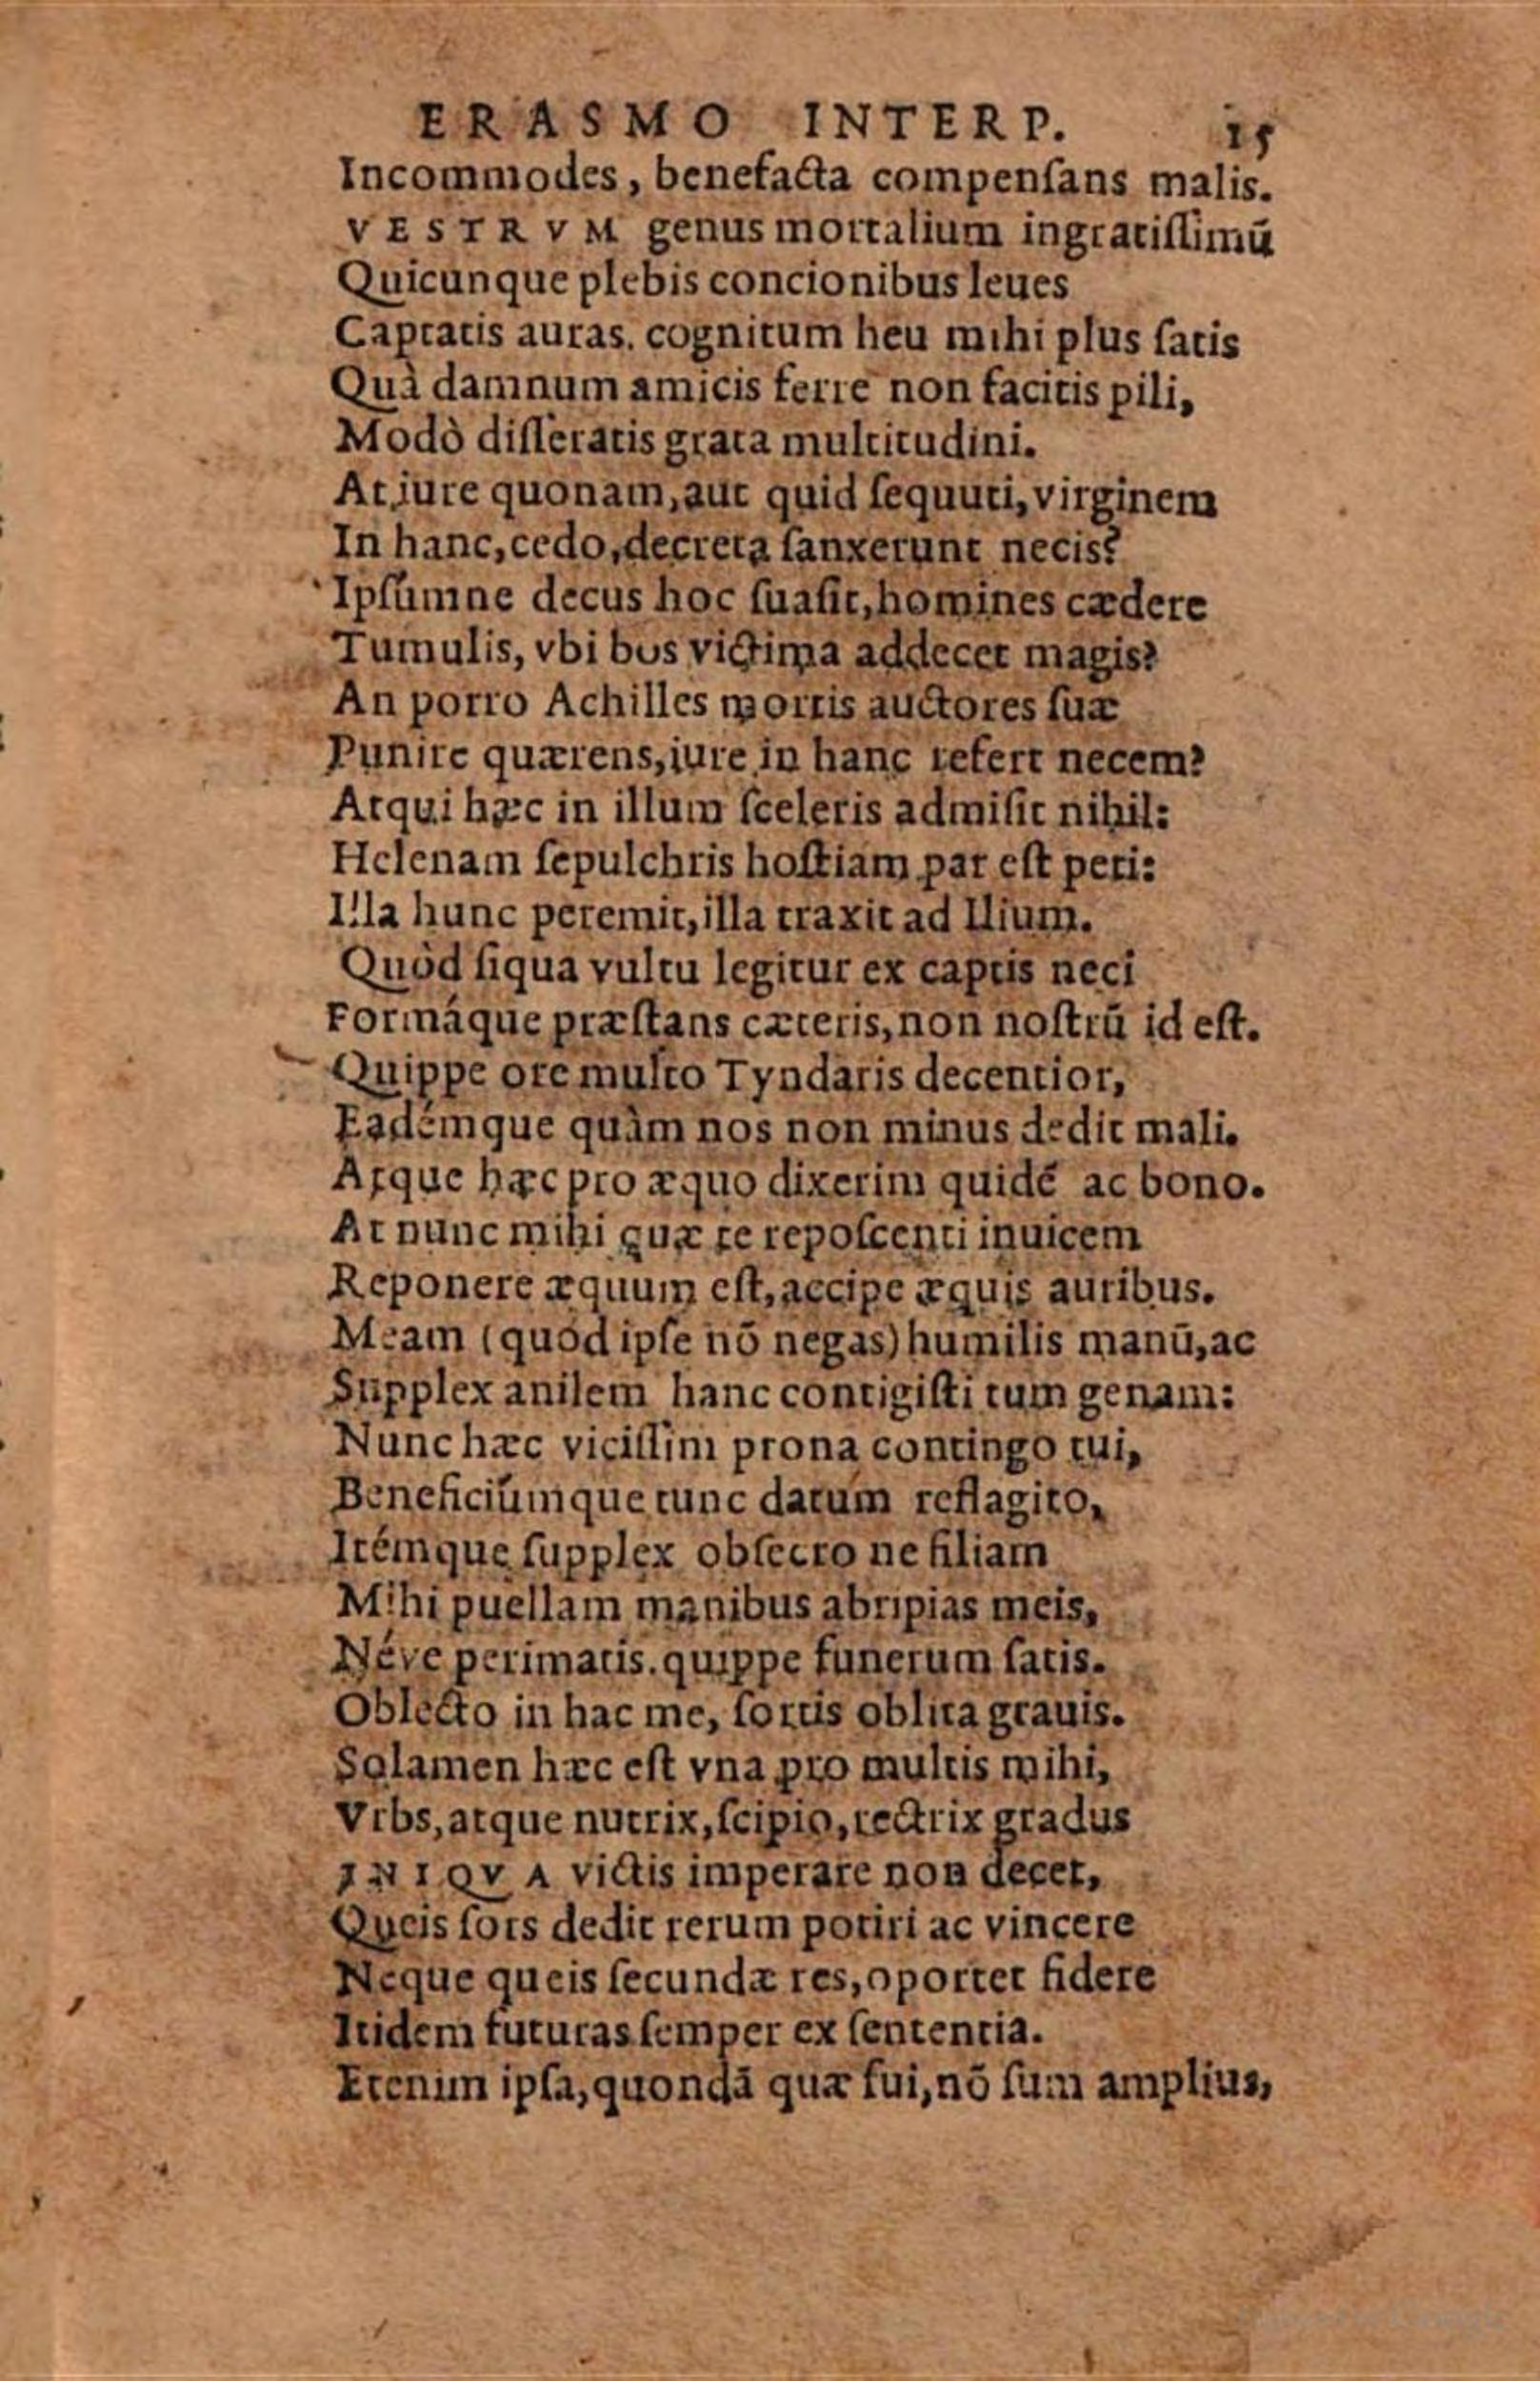 ERASMO INTERP. 15
Incommodes, benefacta compenſans malis.
VESTRVM genus mortalium ingratiſſimū
Quicunque plebis concionibus leues
Captatis auras. cognitum heu mihi plus ſatis
Quà damnum amicis ferre non facitis pili,
Modò diſſeratis grata multitudini.
At iure quonam, aut quid ſequuti, virginem
In hanc, cedo, decreta ſanxerunt necis?
Ipſúmne decus hoc ſuaſit, homines cædere
Tumulis, vbi bos victima addecet magis?
An porro Achilles mortis auctores ſuæ
Punire quærens, iure in hanc refert necem?
Atqui hæc in illum ſceleris admiſit nihil:
Helenam ſepulchris hoſtiam par eſt peti:
Illa hunc peremit, illa traxit ad Ilium.
Quòd ſiqua vultu legitur ex captis neci
Formáque præſtans cæteris, non noſtrū id eſt.
Quippe ore multo Tyndaris decentior,
Eadémque quàm nos non minus dedit mali.
Atque hæc pro æquo dixerim quidē ac bono.
At nunc mihi quæ te repoſcenti inuicem
Reponere æquum eſt, accipe æquis auribus.
Meam (quod ipſe nō negas) humilis manū, ac
Supplex anilem hanc contigiſti tum genam:
Nunc hæc viciſſim prona contingo tui,
Beneficiúmque tunc datum reflagito,
Itémque ſupplex obſecro ne filiam
Mihi puellam manibus abripias meis,
Néve perimatis. quippe funerum ſatis.
Oblecto in hac me, ſortis oblita grauis.
Solamen hæc eſt vna pro multis mihi,
Vrbs, atque nutrix, ſcipio, rectrix gradus
INIQVA victis imperare non decet,
Queis ſors dedit rerum potiri ac vincere
Neque queis ſecundæ res, oportet fidere
Itidem futuras ſemper ex ſententia.
Etenim ipſa, quondā quæ fui, nō ſum amplius,